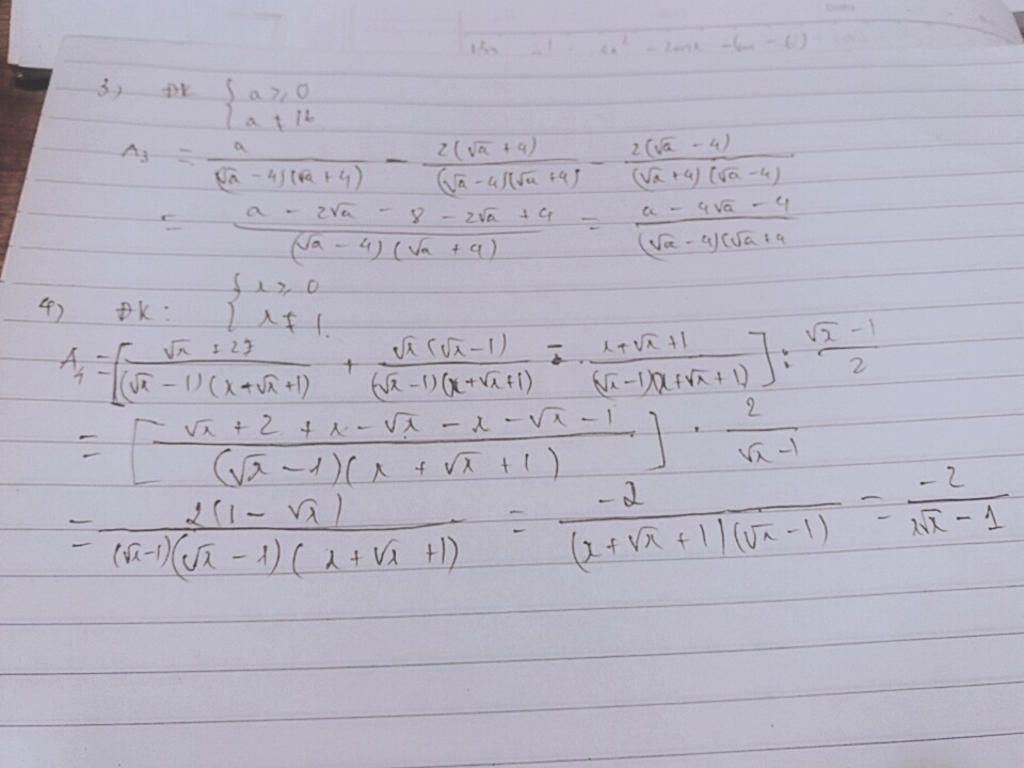 3) ĐK { a ≥ 0
{ a ≠ 16
A₃ = a / (√a - 4)(√a + 4) - 2(√a + 4) / (√a - 4)(√a + 4) - 2(√a - 4) / (√a + 4)(√a - 4)
= a - 2√a - 8 - 2√a + 4 / (√a - 4)(√a + 4) = a - 4√a - 4 / (√a - 4)(√a + 4
4) ĐK : { x ≥ 0
{ x ≠ 1.
A₄ = [ √x + 2 / (√x - 1)(x + √x + 1) + √x(√x - 1) / (√x - 1)(x + √x + 1) - x + √x + 1 / (√x - 1)(x + √x + 1) ] : √x - 1 / 2
= [ √x + 2 + x - √x - x - √x - 1 / (√x - 1)(x + √x + 1) ] . 2 / √x - 1
= 2(1 - √x) / (√x - 1)(√x - 1)(x + √x + 1) = -2 / (x + √x + 1)(√x - 1) = -2 / x√x - 1